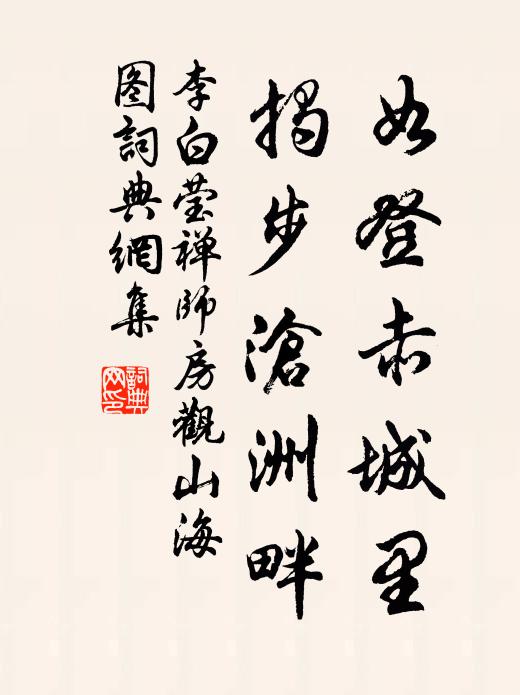 如登赤城里
揭步滄洲畔
李白莹禅師房觀山海
图詞典網集
詞典网印